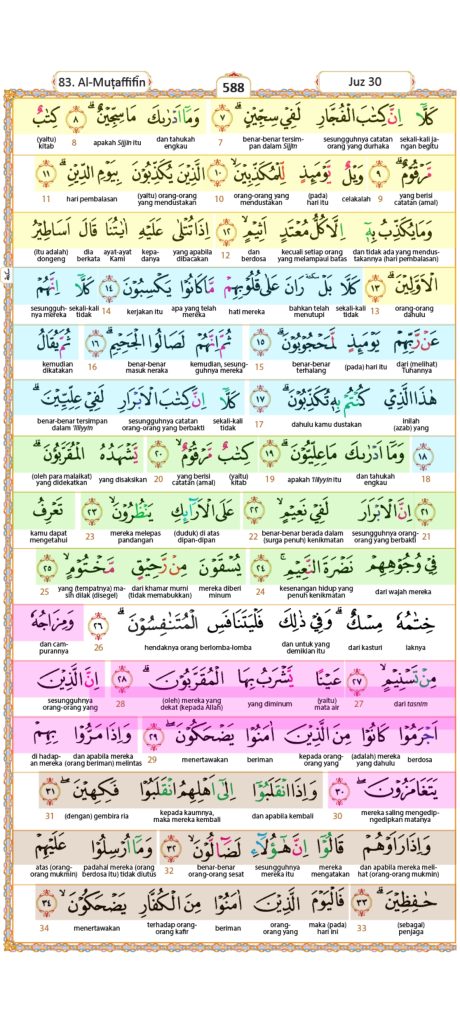 83. Al-Muṭaffifīn 588 Juz 30
كَلَّآ اِنَّ كِتٰبَ الْفُجَّارِ لَفِيْ سِجِّيْنٍۗ ۝٧ وَمَآ اَدْرٰىكَ مَا سِجِّيْنٌۗ ۝٨ كِتٰبٌ
sekali-kali jangan begitu sesungguhnya catatan orang yang durhaka benar-benar tersimpan dalam Sijjin 7 dan tahukah engkau apakah Sijjin itu 8 (yaitu) kitab
مَّرْقُوْمٌۗ ۝٩ وَيْلٌ يَّوْمَىِٕذٍ لِّلْمُكَذِّبِيْنَۙ ۝١٠ الَّذِيْنَ يُكَذِّبُوْنَ بِيَوْمِ الدِّيْنِۗ ۝١١
yang berisi catatan (amal) 9 celakalah (pada) hari itu orang-orang yang mendustakan 10 (yaitu) orang-orang yang mendustakan hari pembalasan 11
وَمَا يُكَذِّبُ بِهٖٓ اِلَّا كُلُّ مُعْتَدٍ اَثِيْمٍۙ ۝١٢ اِذَا تُتْلٰى عَلَيْهِ اٰيٰتُنَا قَالَ اَسَاطِيْرُ
dan tidak ada yang mendustakannya (hari pembalasan) kecuali setiap orang yang melampaui batas dan berdosa 12 yang apabila dibacakan kepadanya ayat-ayat Kami dia berkata (itu adalah) dongeng
الْاَوَّلِيْنَۗ ۝١٣ كَلَّا بَلْ رَانَ عَلٰى قُلُوْبِهِمْ مَّا كَانُوْا يَكْسِبُوْنَ ۝١٤ كَلَّآ اِنَّهُمْ
orang-orang dahulu 13 sekali-kali tidak bahkan telah menutupi hati mereka apa yang telah mereka kerjakan itu 14 sekali-kali tidak sesungguhnya mereka
عَنْ رَّبِّهِمْ يَوْمَىِٕذٍ لَّمَحْجُوْبُوْنَۗ ۝١٥ ثُمَّ اِنَّهُمْ لَصَالُوا الْجَحِيْمِۗ ۝١٦ ثُمَّ يُقَالُ
dari (melihat) Tuhannya (pada) hari itu benar-benar terhalang 15 kemudian, sesungguhnya mereka benar-benar masuk neraka 16 kemudian dikatakan
هٰذَا الَّذِيْ كُنْتُمْ بِهٖ تُكَذِّبُوْنَۗ ۝١٧ كَلَّآ اِنَّ كِتٰبَ الْاَبْرَارِ لَفِيْ عِلِّيِّيْنَۗ
Inilah (azab) yang dahulu kamu dustakan 17 sekali-kali tidak sesungguhnya catatan orang-orang yang berbakti benar-benar tersimpan dalam 'Illiyin
۝١٨ وَمَآ اَدْرٰىكَ مَا عِلِّيُّوْنَۗ ۝١٩ كِتٰبٌ مَّرْقُوْمٌۙ ۝٢٠ يَّشْهَدُهُ الْمُقَرَّبُوْنَۗ
18 dan tahukah engkau apakah 'Illiyin itu 19 (yaitu) kitab yang berisi catatan (amal) 20 yang disaksikan (oleh para malaikat) yang didekatkan
۝٢١ اِنَّ الْاَبْرَارَ لَفِيْ نَعِيْمٍۙ ۝٢٢ عَلَى الْاَرَاۤىِٕكِ يَنْظُرُوْنَۙ ۝٢٣ تَعْرِفُ
21 sesungguhnya orang-orang yang berbakti benar-benar berada dalam (surga penuh) kenikmatan 22 (duduk) di atas dipan-dipan mereka melepas pandangan 23 kamu dapat mengetahui
فِيْ وُجُوْهِهِمْ نَضْرَةَ النَّعِيْمِۚ ۝٢٤ يُسْقَوْنَ مِنْ رَّحِيْقٍ مَّخْتُوْمٍۙ ۝٢٥
dari wajah mereka kesenangan hidup yang penuh kenikmatan 24 mereka diberi minum dari khamar murni (tidak memabukkan) yang (tempatnya) masih dilak (disegel) 25
خِتٰمُهٗ مِسْكٌۗ وَفِيْ ذٰلِكَ فَلْيَتَنَافَسِ الْمُتَنٰفِسُوْنَۗ ۝٢٦ وَمِزَاجُهٗ
laknya dari kasturi dan untuk yang demikian itu hendaknya orang berlomba-lomba 26 dan campurannya
مِنْ تَسْنِيْمٍۙ ۝٢٧ عَيْنًا يَّشْرَبُ بِهَا الْمُقَرَّبُوْنَۗ ۝٢٨ اِنَّ الَّذِيْنَ
dari tasnim 27 (yaitu) mata air yang diminum (oleh) mereka yang dekat (kepada Allah) 28 sesungguhnya orang-orang yang
اَجْرَمُوْا كَانُوْا مِنَ الَّذِيْنَ اٰمَنُوْا يَضْحَكُوْنَۖ ۝٢٩ وَاِذَا مَرُّوْا بِهِمْ
berdosa (adalah) mereka yang dahulu kepada orang-orang yang beriman menertawakan 29 dan apabila mereka (orang beriman) melintas di hadapan mereka
يَتَغَامَزُوْنَۖ ۝٣٠ وَاِذَا انْقَلَبُوْٓا اِلٰٓى اَهْلِهِمُ انْقَلَبُوْا فَكِهِيْنَۖ ۝٣١
mereka saling mengedip-ngedipkan matanya 30 dan apabila kembali kepada kaumnya, maka mereka kembali (dengan) gembira ria 31
وَاِذَا رَاَوْهُمْ قَالُوْٓا اِنَّ هٰٓؤُلَاۤءِ لَضَاۤلُّوْنَۙ ۝٣٢ وَمَآ اُرْسِلُوْا عَلَيْهِمْ
dan apabila mereka melihat (orang-orang mukmin) mereka mengatakan sesungguhnya mereka itu benar-benar orang-orang sesat 32 padahal mereka (orang berdosa itu) tidak diutus atas (orang-orang mukmin)
حٰفِظِيْنَۗ ۝٣٣ فَالْيَوْمَ الَّذِيْنَ اٰمَنُوْا مِنَ الْكُفَّارِ يَضْحَكُوْنَۙ ۝٣٤
(sebagai) penjaga 33 maka (pada) hari ini orang-orang yang beriman terhadap orang-orang kafir menertawakan 34